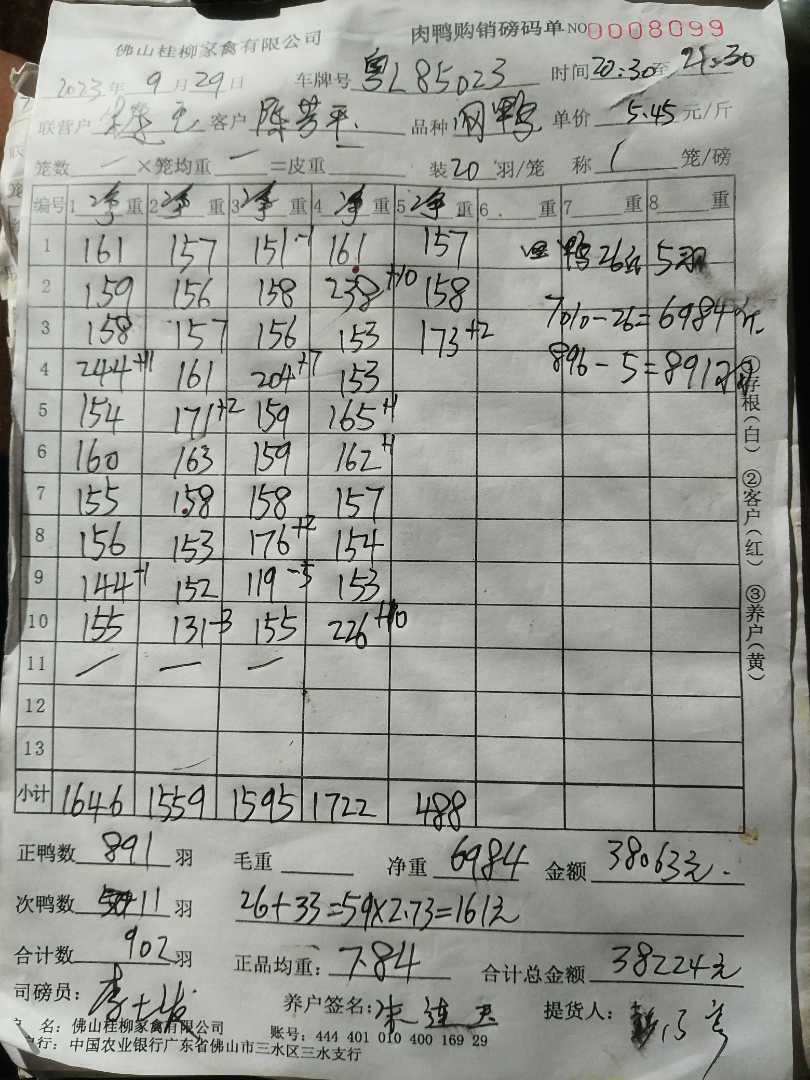 佛山桂柳家禽有限公司 肉鸭购销磅码单 NO 0008099
2023年9月29日 车牌号 粤L85023 时间20:30至21:30
联营户 朱 客户 陈芳平 品种 鸭 单价 5.45 元/斤
笼数 一 ×笼均重 一 =皮重 装20羽/笼 称 1 笼/磅
编号 1 净 重 2 净 重 3 净 重 4 净 重 5 净 重 6 重 7 重 8 重
1 161 157 151-1 161 157 鸭26斤 5羽
2 159 156 158 238+10 158 7010-26=6984斤
3 158 157 156 153 173+2
4 244+11 161 204+7 153 896-5=891羽
5 154 171+2 159 165+1
6 160 163 159 162+1
7 155 158 158 157
8 156 153 176+2 154
9 144+1 152 119-5 153
10 155 131-3 155 226+10
11 一 一 一
12
13
小计 1646 1559 1595 1722 488
正鸭数 891 羽 毛重 净重 6984 金额 38063元.
次鸭数 11 羽 26+33=59×2.73=161元
合计数 902 羽 正品均重: 7.84 合计总金额 38224元
司磅员: 李 养户签名: 朱连 提货人:
名: 佛山桂柳家禽有限公司 账号: 444 401 010 400 169 29
行: 中国农业银行广东省佛山市三水区三水支行
①存根(白) ②客户(红) ③养户(黄)